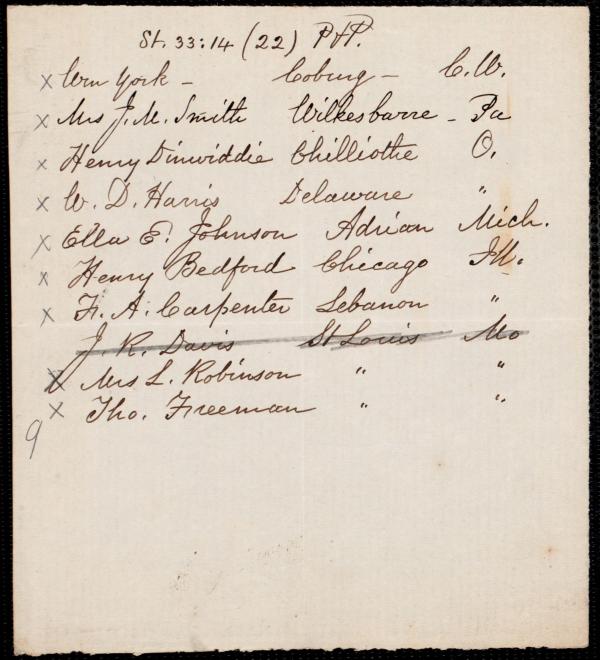 St. 33:14 (22) P&P.
x Wm York – Coburg – C.W.
x Mrs J. M. Smith Wilkesbarre – Pa
x Henry Dinwiddie Chilliothe O.
x W. D. Harris Delaware "
x Ella E. Johnson Adrian Mich.
x Henry Bedford Chicago Ill.
x F. A. Carpenter Lebanon "
J. R. Davis St Louis Mo
x Mrs L. Robinson " "
x Tho. Freeman " "
9